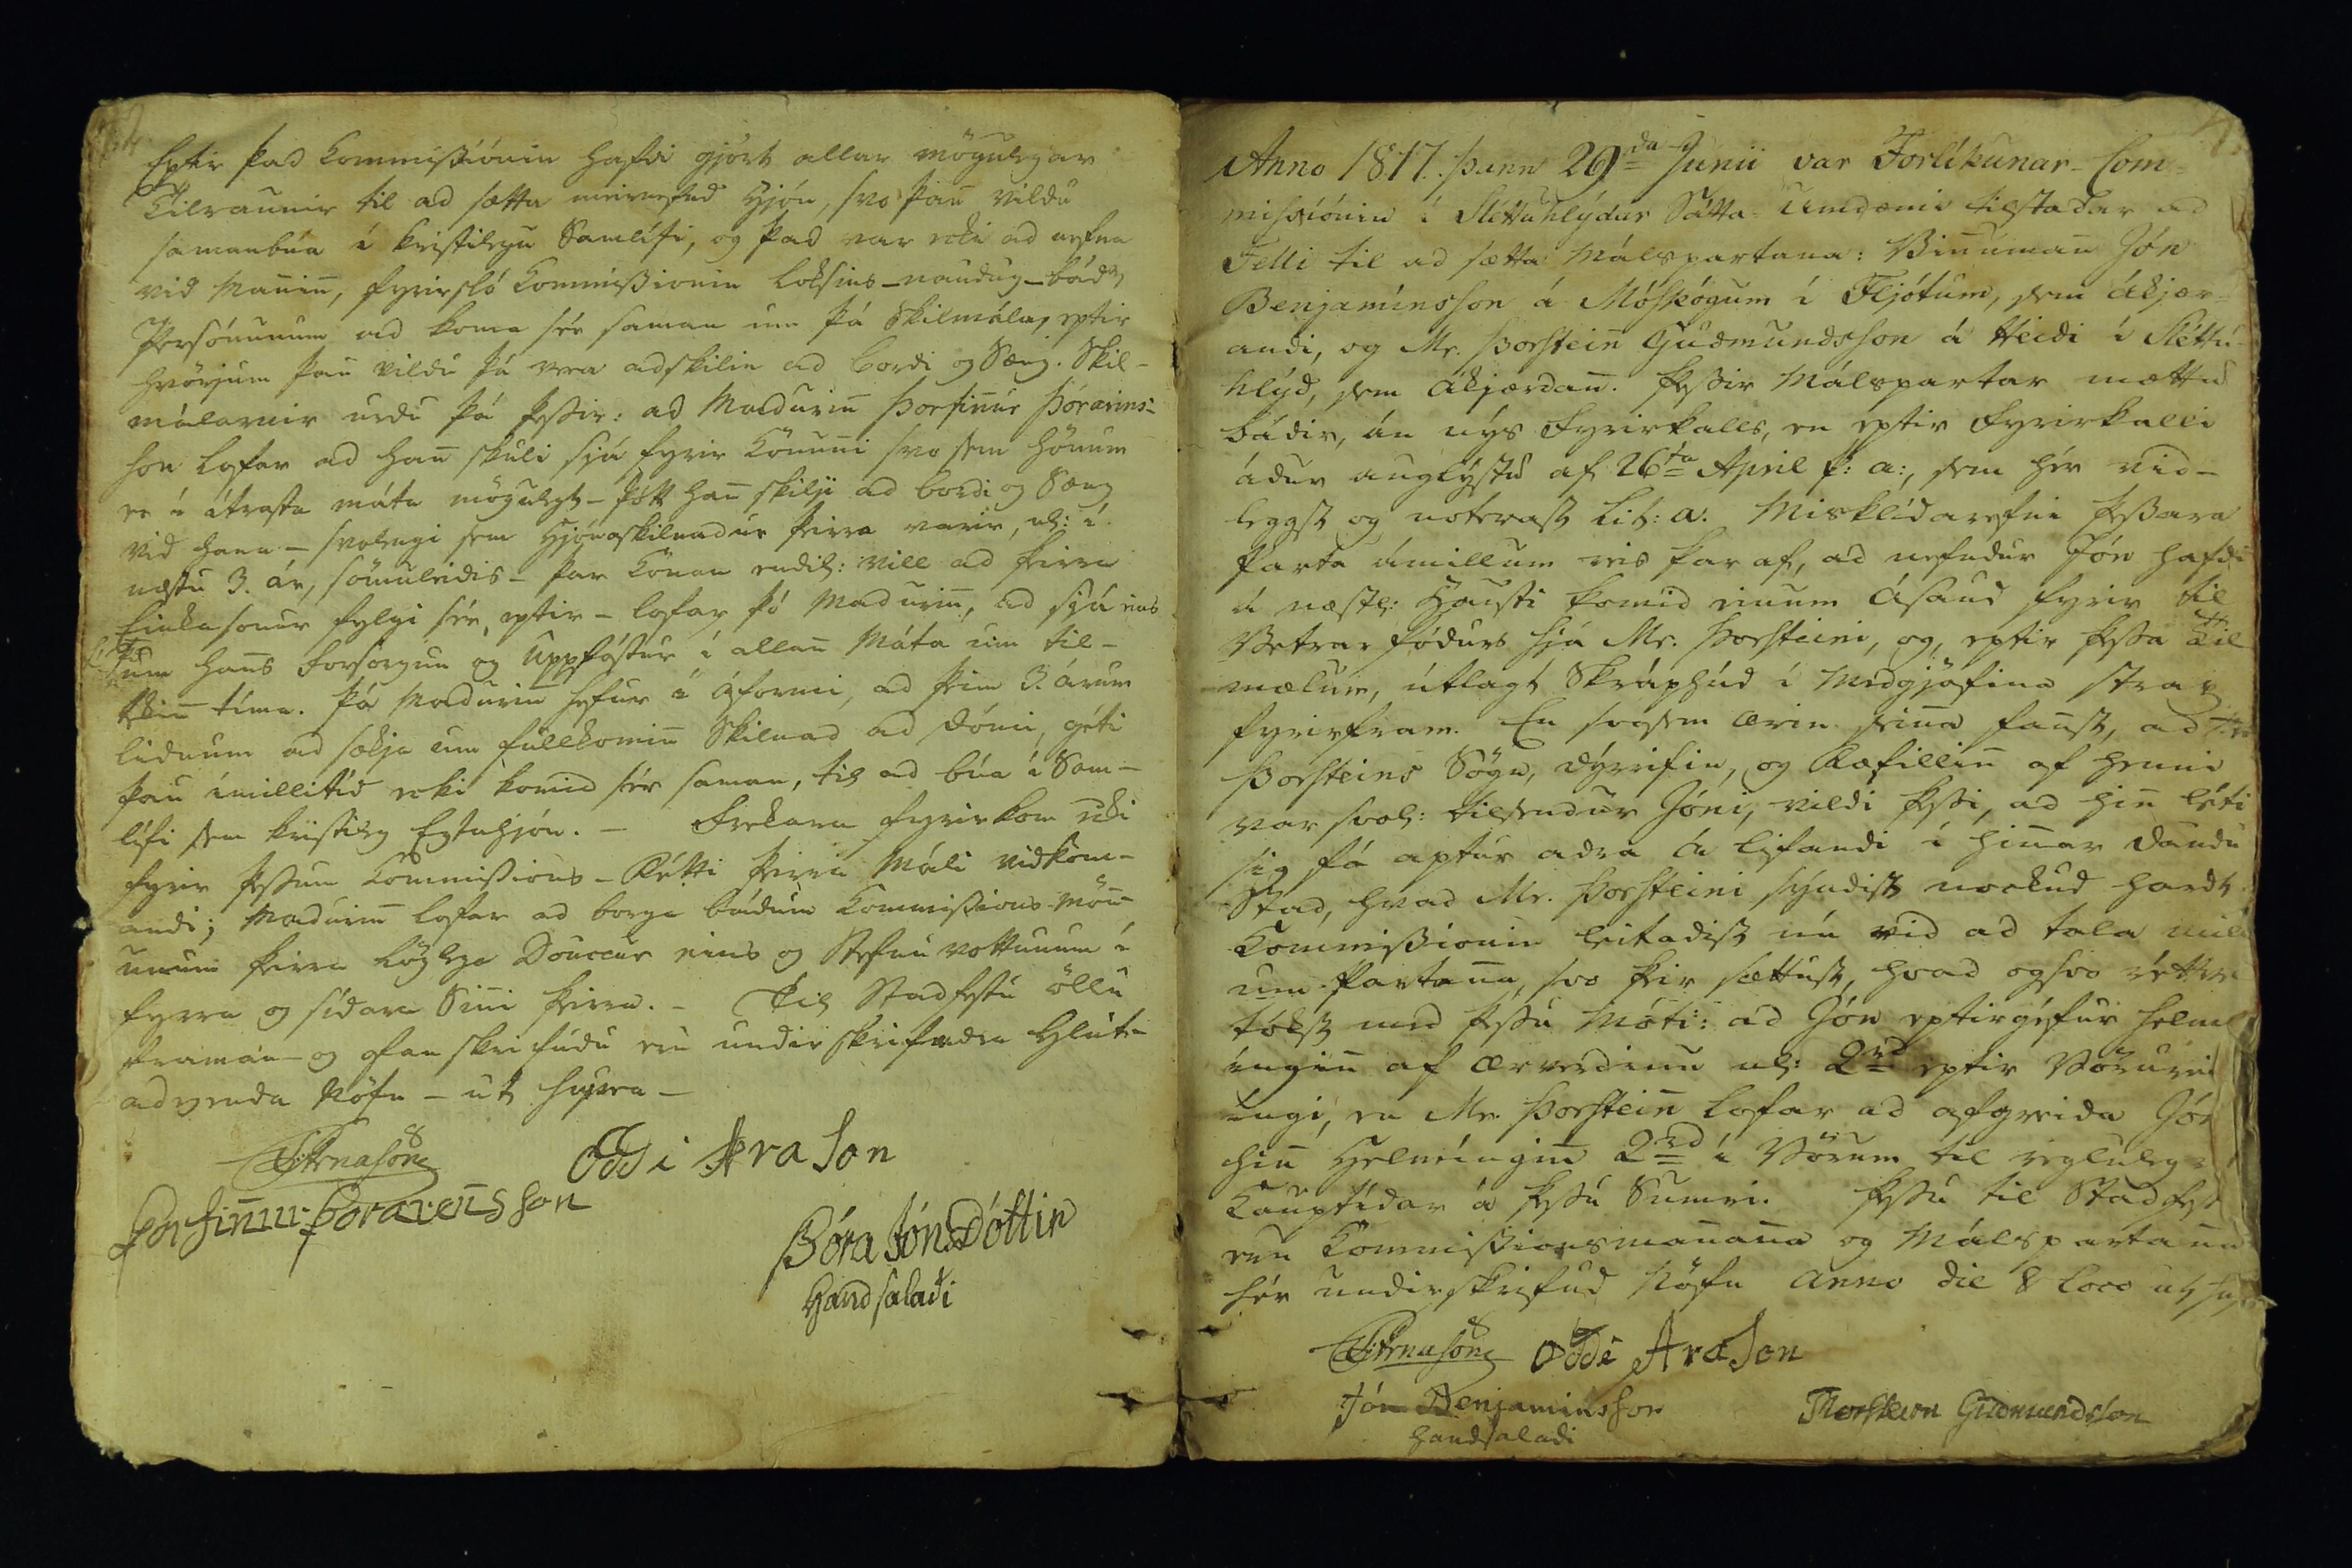 Eptir þad Commissiónin hafdi gjört allar mögulegar
Tilraunir til ad sætta umrædd Hjón, svo þau vildu
samanbúa í kristilegu Samlífi, og þad var ecki ad nefna
vid Mañiñ, fyrirsló Commissionin loksins - naudug - bádum
Persónunum ad koma sér saman um þá Skilmála, eptir
hvörjum þau vildu þá vera adskilin ad bordi og Sæng. Skil-
málarnir urdu þá þessir: ad Maduriñ Þorfiñur Þórarins-
son lofar ad hañ skuli sjá fyrir Konuñi svo sem hönum
er í ítrasta máta mögulegt - þótt hañ skilji ad bordi og Sæng
vid hana - svolengi sem Hjónaskilnadur þeirra varir, nl: í
næstu 3. ár, sömuleidis - þar Konan endil: vill ad þeirra
Einkasonur fylgi sér, eptir - lofar þó Maduriñ, ad sjá eins
um hans Forsorgun og Uppfóstur í allañ Máta um til-
tekiñ tíma. Þá Maduriñ hefur í áformi, ad þeim 3. árum
lidnum ad sækja um fullkomiñ Skilnad ad dómi, géti
þau ímillitíd ecki komid sér saman, til ad búa í Sam-
lífi sem kristileg Egtahjón. - Frekara fyrirkom ecki
fyrir þessum Commissions-Rétti þeirra Máli vidkom-
andi; Maduriñ lofar ad borga bádum Commissions-Möñ-
unum þeirra löglega Douceur eins og Stefnuvottunum í
fyrra og sídara Siñi þeirra. - Til Stadfestu öllu
framan- og ofanskrifudu eru undirskrifadra Hlut-
adegenda Nöfn - ut supra -
Oddi Ara Son
Þorfiñur Þorarensson
Þóra Jóns Dóttir
Handsaladi
Anno 1817. þann 29da Junii var Forlíkunar-Com-
missiónin í Sléttuhlýdar Sátta-Umdæmi tilstadar ad
Felli til ad sætta Málspartana: Viñumañ Jón
Benjamínsson á Móskógum í Fljótum, sem ákjær-
andi, og Mr. Þorsteiñ Gudmundsson á Heidi í Sléttu-
hlýd, sem ákjærdañ. Þessir Málspartar mættu
bádir, án nýs Fyrirkalls, en eptir Fyrirkalli
ádur auglýstu af 26ta April þ: a:, sem hér vid-
leggst og noterast Lit: a. Misklídarefni þessara
Parta ámillum reis þar af, ad nefndur Jón hafdi
á næstl: Hausti komid einum Ásaud fyrir til
Vetrar fódurs hjá Mr. Þorsteini, og, eptir þessa Til
mælum, útlagt Skráphúd í Medgjöfina strax
fyrirfram. En svosem ærin seiña fañst, ad
Þorsteins Sögn, dýrrifin, og Ræfilliñ af henni
var svol: tilsendur Jóni, vildi þessi, ad hiñ léti
sig fá aptur adra á lifandi í hiñar daudu
Stad, hvad Mr. Þorsteini sýndist nockud hardt.
Commissionin leitadist nú vid ad tala mill
um Partaña, svo þeir sættust, hvad ogsvo réttara
tókst med þessu Móti: ad Jón eptirgéfur helm
íngiñ af Ærverdinu nl: 2rd eptir Vöru
íngi, en Mr. Þorsteiñ lofar ad afgreida Jón
hiñ Helmíngiñ 2rd í Vörum til reglulegr
Kauptídar á þessu Sumri. Þessu til Stadfest
eru Commissionsmañaña og Málspartana
hér undirskrifud Nöfn Anno die & loco ut su
Oddi Ara Son
Jón Benjaminsson
handsaladi
Thorsteirn Gudmundsson